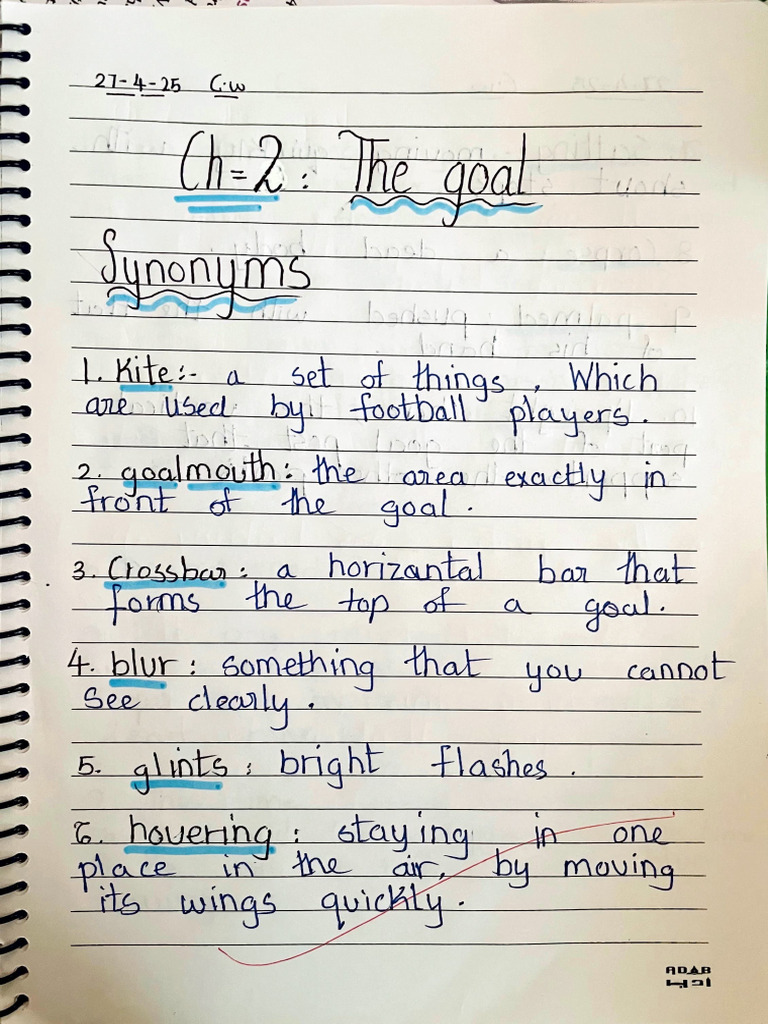 27-4-25 C.w
Ch=2: The goal
Synonyms
1. Kite:- a set of things, Which
are used by football players.
2. goalmouth: the area exactly in
front of the goal.
3. Crossbar: a horizantal bar that
forms the top of a goal.
4. blur: something that you cannot
see clearly.
5. glints: bright flashes.
6. hovering: staying in one
place in the air, by moving
its wings quickly.
ADAB
أدب